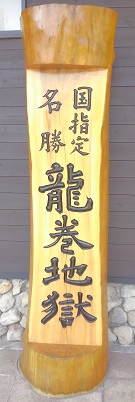 国指定
名勝
龍巻地獄